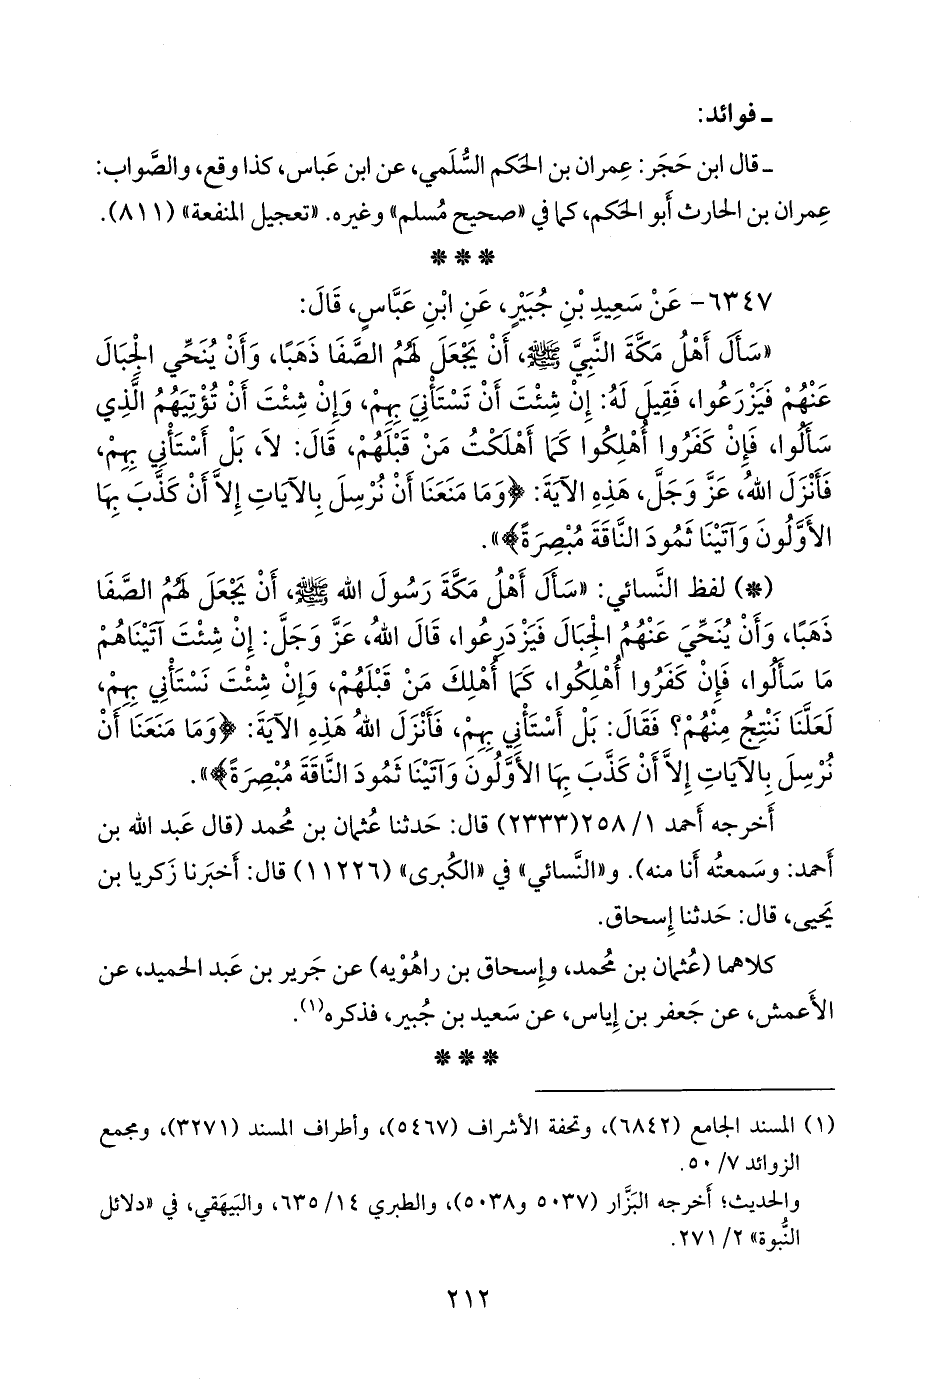 ـ فوائد:
ـ قال ابن حَجَر: عِمران بن الحَكم السُّلَمي، عن ابن عَباس، كذا وقع، والصَّواب:
عِمران بن الحارث أَبو الحَكم، كما في «صحيح مُسلم» وغيره. «تعجيل المنفعة» (٨١١).
* * *
٦٣٤٧- عَنْ سَعِيدِ بْنِ جُبَيْرٍ، عَنِ ابْنِ عَبَّاسٍ، قَالَ:
«سَأَلَ أَهْلُ مَكَّةَ النَّبِيَّ ﷺ، أَنْ يَجْعَلَ لَهُمُ الصَّفَا ذَهَبًا، وَأَنْ يُنَحِّي الْجِبَالَ
عَنْهُمْ فَيَزْرَعُوا، فَقِيلَ لَهُ: إِنْ شِئْتَ أَنْ تَسْتَأْنِيَ بِهِمْ، وَإِنْ شِئْتَ أَنْ تُؤْتِيَهُمُ الَّذِي
سَأَلُوا، فَإِنْ كَفَرُوا أُهْلِكُوا كَمَا أَهْلَكْتُ مَنْ قَبْلَهُمْ، قَالَ: لاَ، بَلْ أَسْتَأْنِي بِهِمْ،
فَأَنْزَلَ اللهُ، عَزَّ وَجَلَّ، هَذِهِ الآيَةَ: ﴿وَمَا مَنَعَنَا أَنْ نُرْسِلَ بِالآيَاتِ إِلاَّ أَنْ كَذَّبَ بِهَا
الأَوَّلُونَ وَآتَيْنَا ثَمُودَ النَّاقَةَ مُبْصِرَةً﴾».
(*) لفظ النَّسائي: «سَأَلَ أَهْلُ مَكَّةَ رَسُولَ الله ﷺ، أَنْ يَجْعَلَ لَهُمُ الصَّفَا
ذَهَبًا، وَأَنْ يُنَحِّيَ عَنْهُمُ الْجِبَالَ فَيَزْدَرِعُوا، قَالَ اللهُ، عَزَّ وَجَلَّ: إِنْ شِئْتَ آتَيْنَاهُمْ
مَا سَأَلُوا، فَإِنْ كَفَرُوا أُهْلِكُوا، كَمَا أُهْلِكَ مَنْ قَبْلَهُمْ، وَإِنْ شِئْتَ نَسْتَأْنِي بِهِمْ،
لَعَلَّنَا نَنْتِجُ مِنْهُمْ؟ فَقَالَ: بَلْ أَسْتَأْنِي بِهِمْ، فَأَنْزَلَ اللهُ هَذِهِ الآيَةَ: ﴿وَمَا مَنَعَنَا أَنْ
نُرْسِلَ بِالآيَاتِ إِلاَّ أَنْ كَذَّبَ بِهَا الأَوَّلُونَ وَآتَيْنَا ثَمُودَ النَّاقَةَ مُبْصِرَةً﴾».
أَخرجه أَحمد ١/ ٢٥٨(٢٣٣٣) قال: حَدثنا عُثمان بن مُحمد (قال عَبد الله بن
أَحمد: وسَمعتُه أَنا منه). و«النَّسائي» في «الكُبرى» (١١٢٢٦) قال: أَخبَرنا زَكريا بن
يَحيى، قال: حَدثنا إِسحاق.
كلاهما (عُثمان بن مُحمد، وإِسحاق بن راهُوْيه) عن جَرير بن عَبد الحميد، عن
الأَعمش، عن جَعفر بن إِياس، عن سَعيد بن جُبير، فذكره(١).
* * *
(١) المسند الجامع (٦٨٤٢)، وتحفة الأشراف (٥٤٦٧)، وأطراف المسند (٣٢٧١)، ومجمع
الزوائد ٧/ ٥٠.
والحديث؛ أخرجه البَزَّار (٥٠٣٧ و٥٠٣٨)، والطبري ١٤/ ٦٣٥، والبَيهَقي، في «دلائل
النُّبوة» ٢/ ٢٧١.
٢١٢